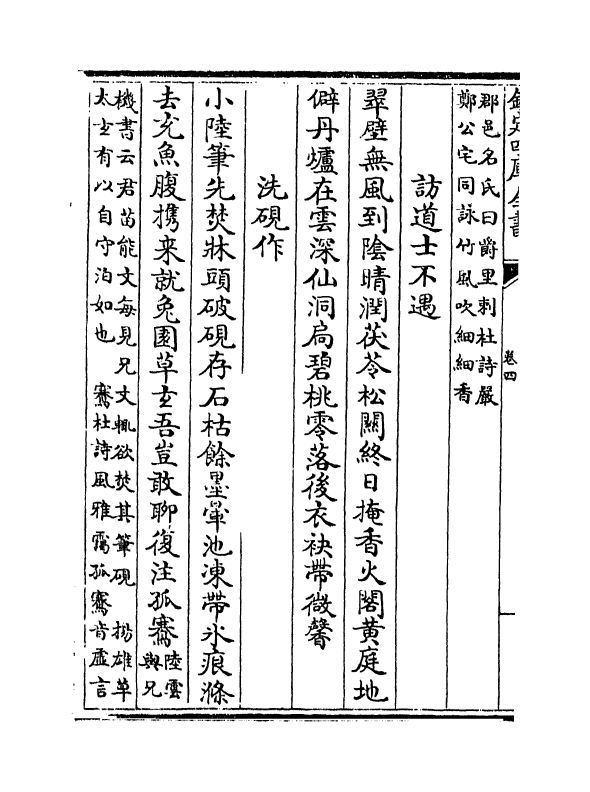 欽定四庫全書
卷四
郡邑名氏曰爵里刺杜詩嚴
鄭公宅同詠竹風吹細細香
訪道士不遇
翠壁無風到陰晴潤茯苓松關終日掩香火閣黃庭地
僻丹爐在雲深仙洞扃碧桃零落後衣袂帶微馨
洗硯作
小陸筆先焚牀頭破硯存石枯餘墨暈池凍帶氷痕滌
去充魚腹携来就兔園草𤣥吾豈敢聊復注孤騫陸雲
與兄
機書云君苗能文每見兄文輒欲焚其筆硯 揚雄草
太𤣥有以自守泊如也 騫杜詩風雅靄孤騫肯虚言